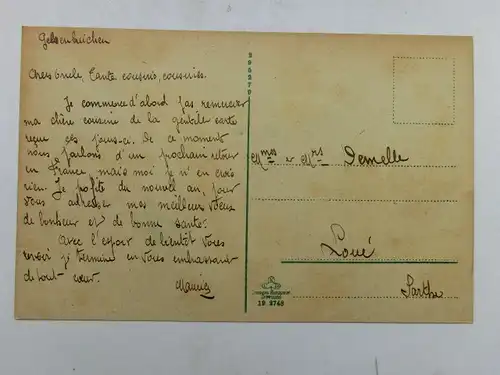 Gelsenkirchen
Chers oncle, Tante, cousins, cousines.
Je commence d'abord pas remercier
ma chère cousine de la gentille carte
reçue ces jours-ci. De ce moment
nous parlons d'un prochain retour
en France mais moi je n'en crois
rien. Je profite du nouvel an, pour
vous adresser mes meilleurs vœux
de bonheur et de bonne santé.
Avec l'espoir de bientôt vous
revoir je termine en vous embrassant
de tout cœur.
Maurice
296270
Mmes et Mrs Demelle
Loué
Sarthe
19 2748